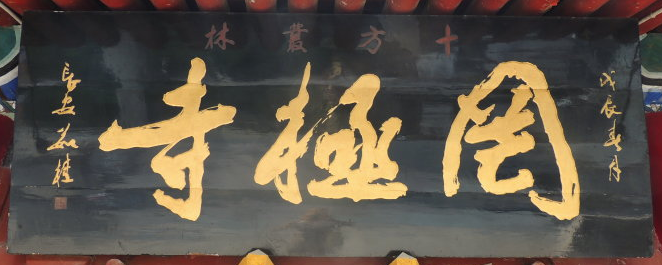 十方叢林
戊辰春月
罔極寺
長安茹桂